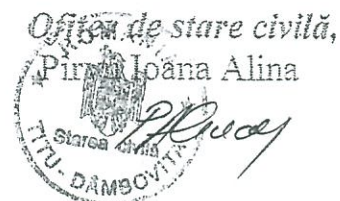 Ofițer de stare civilă,
Ioana Alina
Starea civilă
TITU - DÂMBOVIȚA